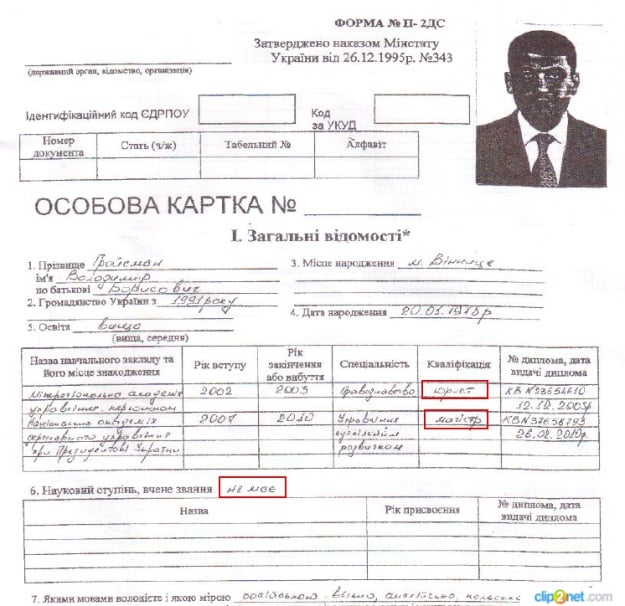 ФОРМА № П- 2ДС
Затверджено наказом Мінстату
України від 26.12.1995р. №343
(державний орган, відомство, організація)
Ідентифікаційний код ЄДРПОУ
Код
за УКУД
Номер документа Стать (ч/ж) Табельний № Алфавіт
ОСОБОВА КАРТКА №
I. Загальні відомості*
1. Прізвище Гройсман
ім'я Володимир
по батькові Борисович
2. Громадянство України з 1991 року
3. Місце народження м. Вінниця
4. Дата народження 20.01.1978р
5. Освіта вища
(вища, середня)
Назва навчального закладу та його місце знаходження Рік вступу Рік закінчення або вибуття Спеціальність Кваліфікація № диплома, дата видачі диплома
Міжрегіональна академія 2002 2003 Правознавство юрист
управління персоналом 12.12.2003р
Національна академія 2007 2010 Управління магістр
державного управління суспільним 26.02.2010р.
при Президентові України розвитком
6. Науковий ступінь, вчене звання не має
Назва Рік присвоєння № диплома, дата видачі диплома
7. Якими мовами володієте і якою мірою
clip2net.com